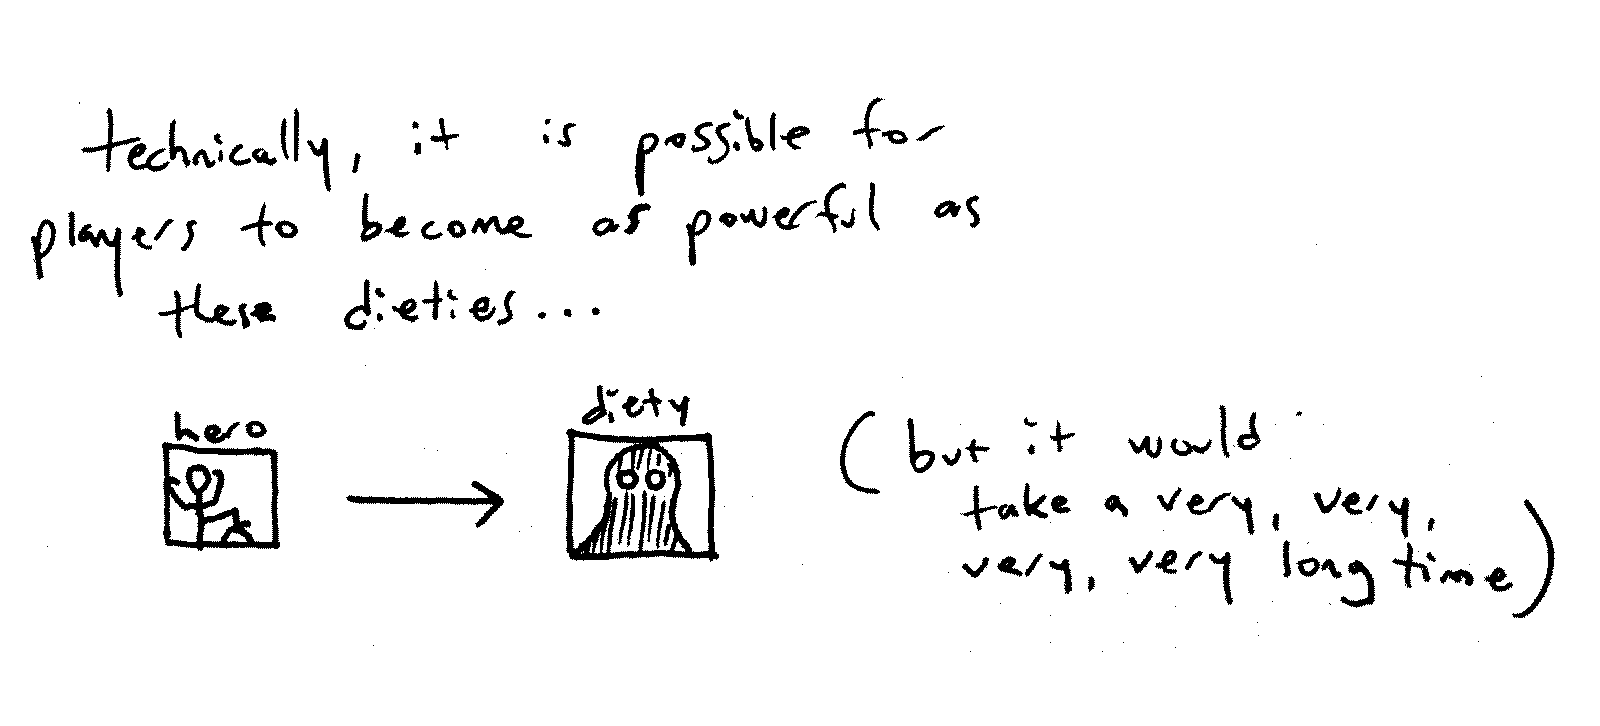 technically, it is possible for
players to become as powerful as
these dieties...
hero
diety
(but it would
take a very, very,
very, very long time)